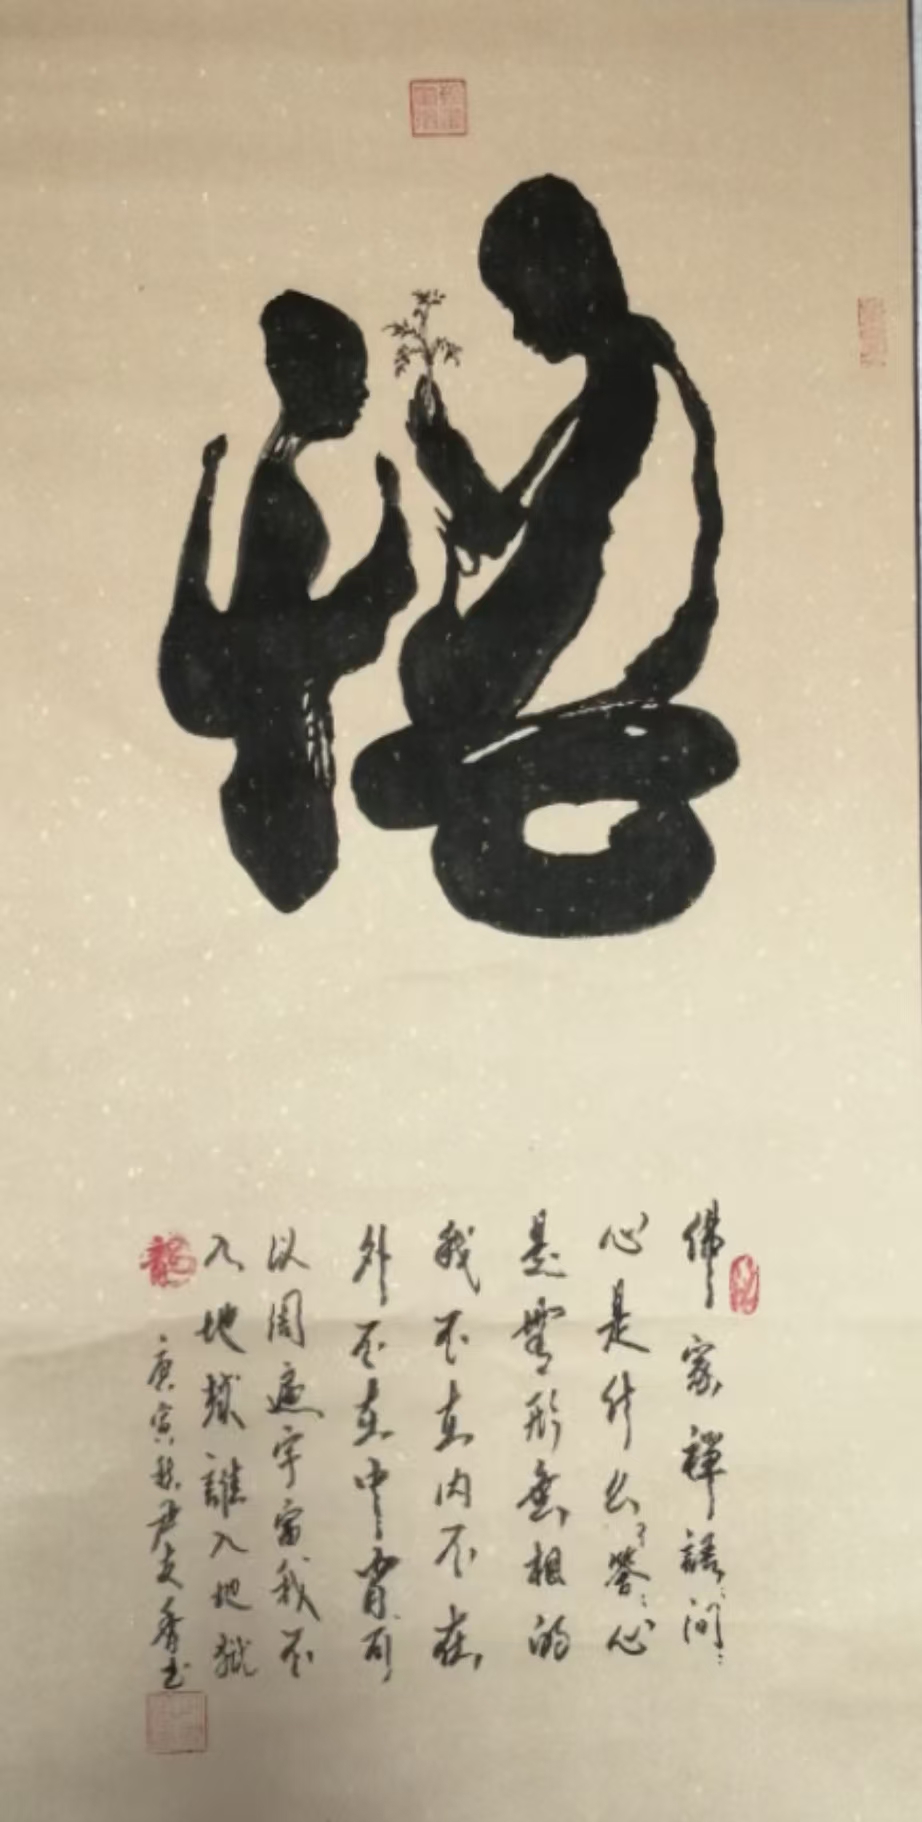 悟
佛家禪語:问:
心是什么?答:心
是無形無相的
我不在内不在
外不在中可
以周遍宇宙我不
入地獄誰入地獄
庚寅秋尹香书